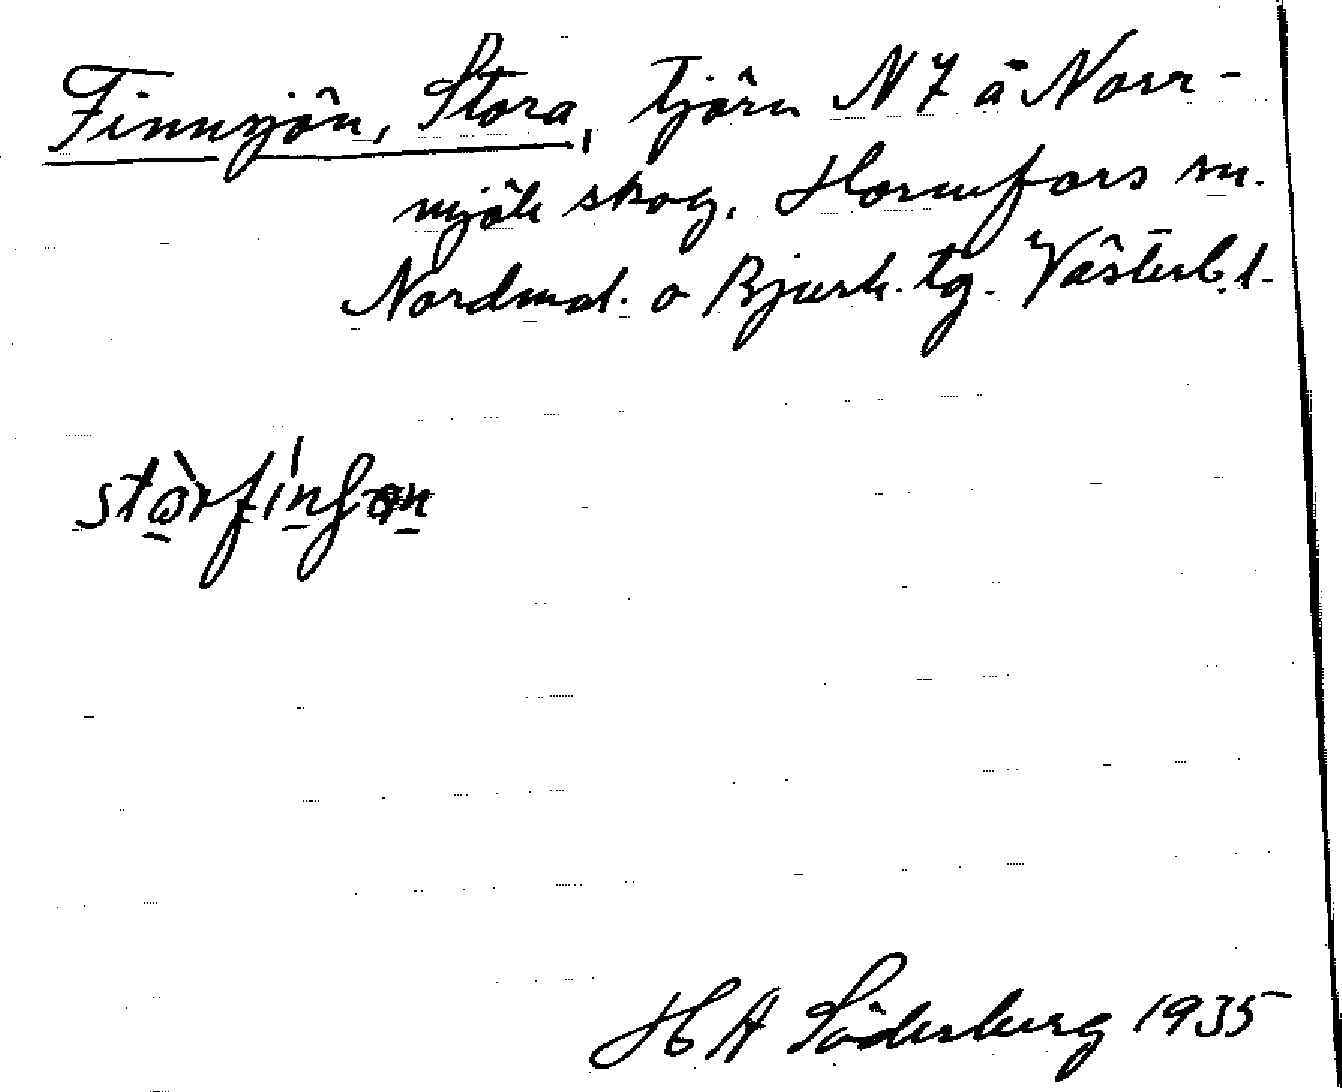 Finnsjön, Stora, tjärn N 7 å Norr-
mjöle skog, Hörnefors sn.
Nordmal. o Bjurh. tg. Västerb. l.
stòrfínʃøn
H A Söderberg 1935